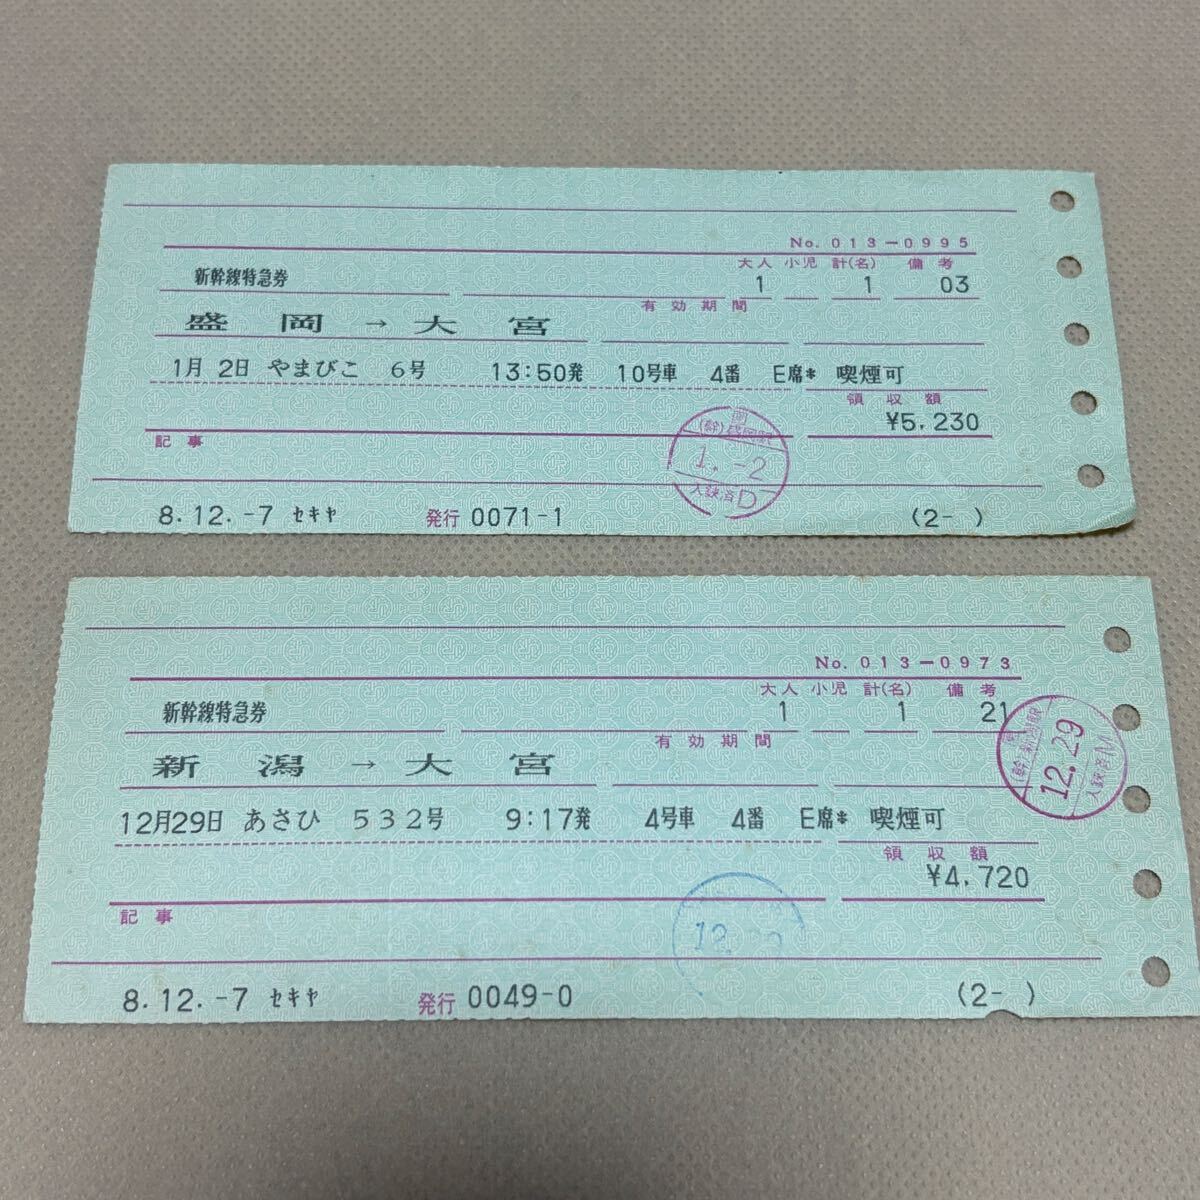 No. 013-0995
大人 小児 計(名) 備考
新幹線特急券 1 1 03
有効期間
盛岡→大宮
1月 2日 やまびこ 6号 13:50発 10号車 4番 E席* 喫煙可
領収額
¥5,230
記事
(幹)盛岡駅
1.-2
入鋏済D
8.12.-7 セキヤ 発行 0071-1 (2- )
No. 013-0973
大人 小児 計(名) 備考
新幹線特急券 1 1 21
有効期間
新潟→大宮
12月29日 あさひ 532号 9:17発 4号車 4番 E席* 喫煙可
(幹)新潟駅
12.29
領収額
¥4,720
記事
12.
8.12.-7 セキヤ 発行 0049-0 (2- )